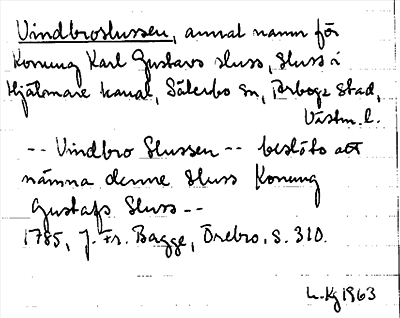 Vindbroslussen, annat namn för
Konung Karl Gustavs sluss, sluss i
Hjälmare kanal, Säterbo sn, Arboga stad,
Västm. l.
-- Vindbro Slussen -- beslöts att
nämna denne Sluss Konung
Gustafs Sluss --
1785, J. Fr. Bagge, Örebro, s. 310.
L. Kg 1963